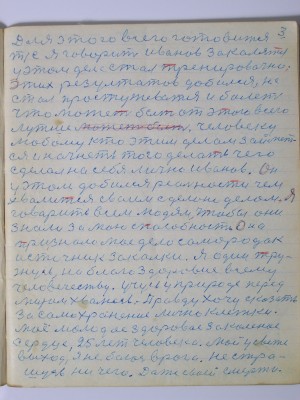 3
Для этого всего готовится
т/е я говорит Иванов Закалять
у этом деле стал тренировачно,
этих результатов добился, не
стал простуживатся и болеть
что может быть от этого всего
лутшее, человеку
любому кто этим делом займет
ся и начнеть того делать чего
сделал на себя лично Иванов. Он
у этом добился реалности чем
хвалится своим сделоно делом. Я
говорить всем людям, чтобы они
знали за мою способность. Она
признано мое дело самородок
источник закалки. Я один тру
жусь на благо здоровие всему
человечеству. учусь у природе перед
людям хвалюсь. Правду хочу сказать
за сохранение лично клетки.
Мое молодое здоровое закаленое
сердце, 25 лет человека. Мой у свете
выход, я не боюсь врага. не стра-
шусь ни чего. Даже своей смерти.